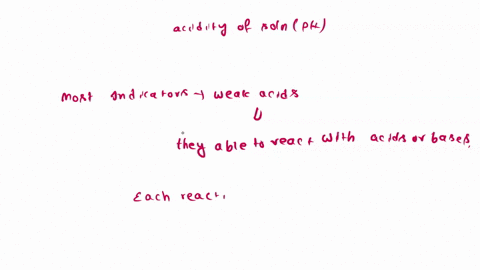 acidity of soln (pH)
most indicators → weak acids
they able to react with acids or bases
Each react